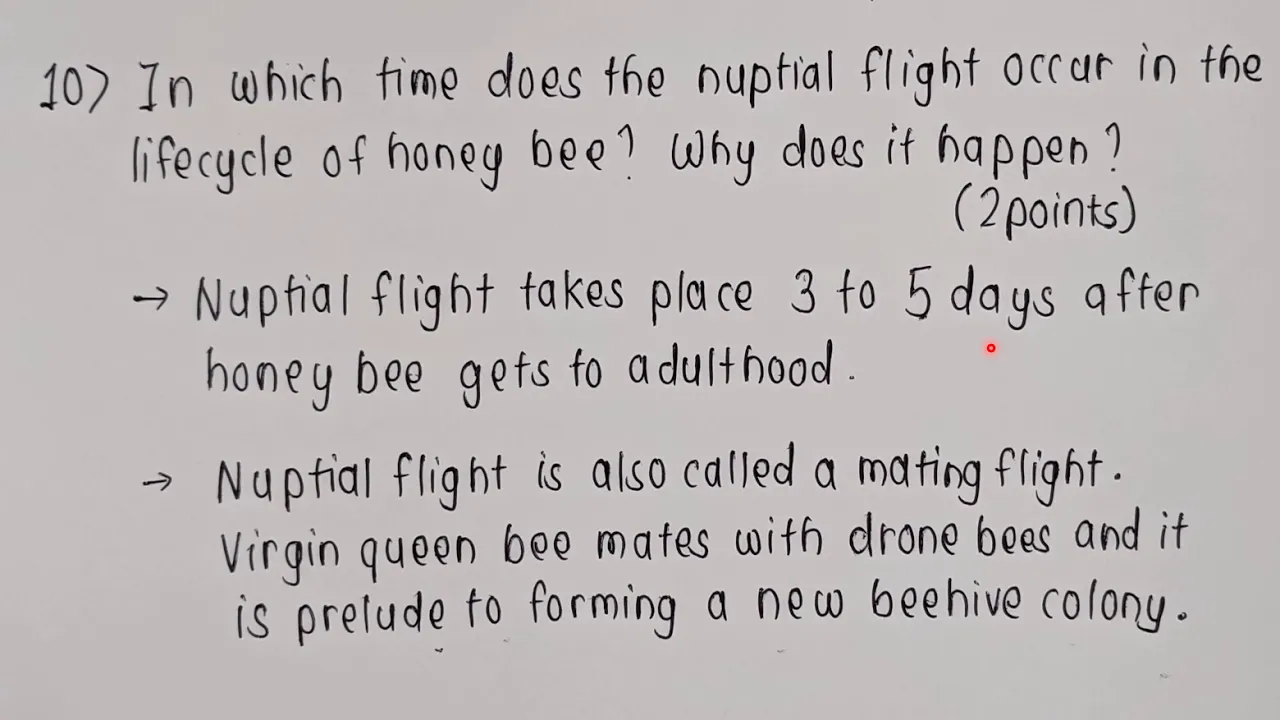 10) In which time does the nuptial flight occur in the
lifecycle of honey bee? Why does it happen?
(2points)
→ Nuptial flight takes place 3 to 5 days after
honey bee gets to adulthood.
→ Nuptial flight is also called a mating flight.
Virgin queen bee mates with drone bees and it
is prelude to forming a new beehive colony.